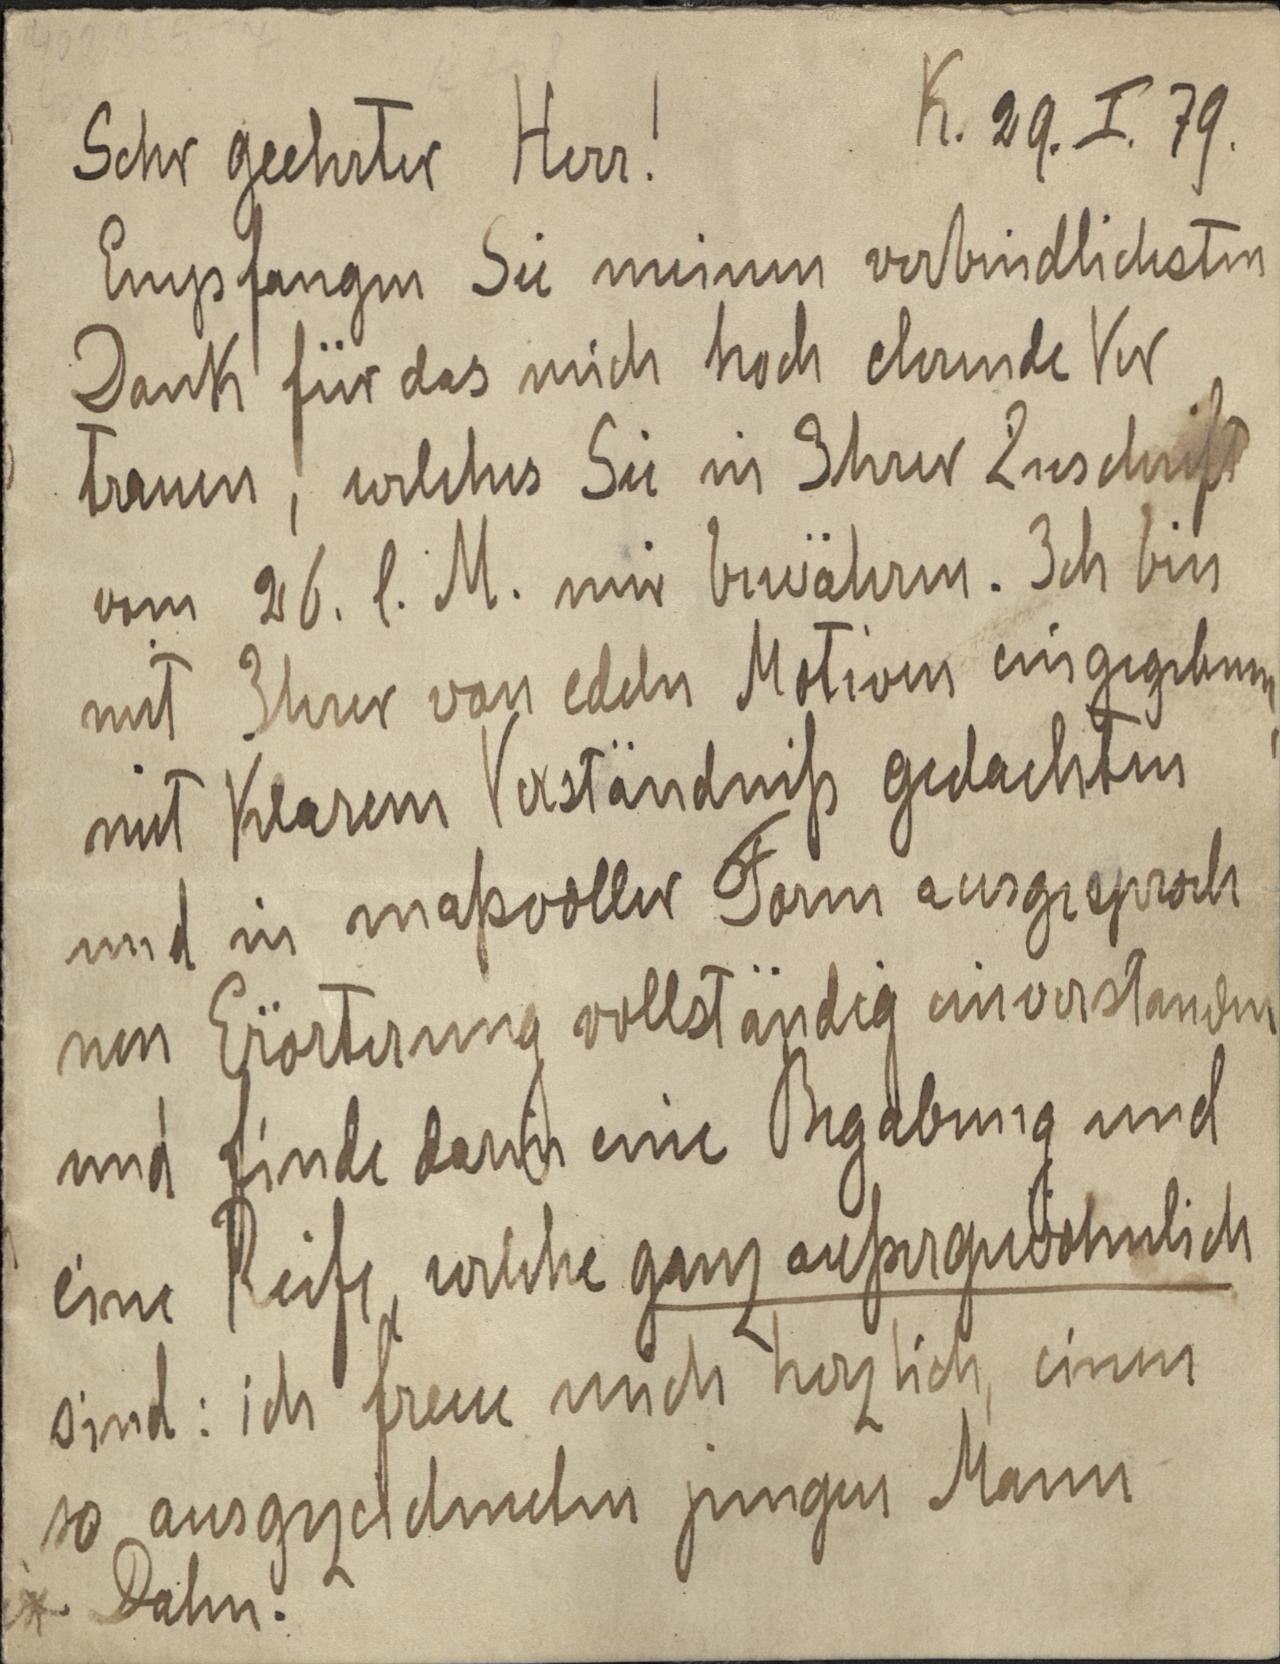 K. 29. I. 79.
Sehr geehrter Herr!
Empfangen Sie meinen verbindlichsten
Dank für das mich hoch ehrende Ver
trauen, welches Sie in Ihrer Zuschrift
vom 26. l. M. mir bewähren. Ich bin
mit Ihrer von edeln Motiven eingegebenen,
mit klarem Verständniß gedachten
und in maßvoller Form ausgesproch
nen Erörterung vollständig einverstanden
und finde darin eine Begabung und
eine Reife, welche ganz außergewöhnlich
sind: ich freue mich herzlich, einen
so ausgezeichneten jungen Mann
* Dahn.